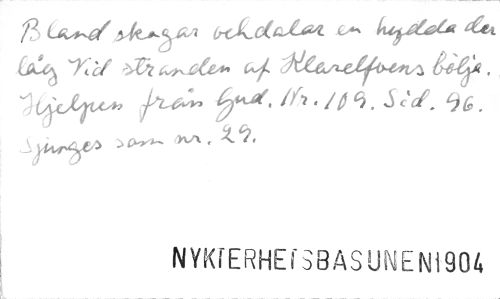 Bland skogar och dalar en hydda der
låg Vid stranden af Klarelfvens bölja.
Hjelpen från Gud. Nr. 109. Sid. 96.
Sjunges som nr. 29.
NYKTERHETSBASUNEN1904